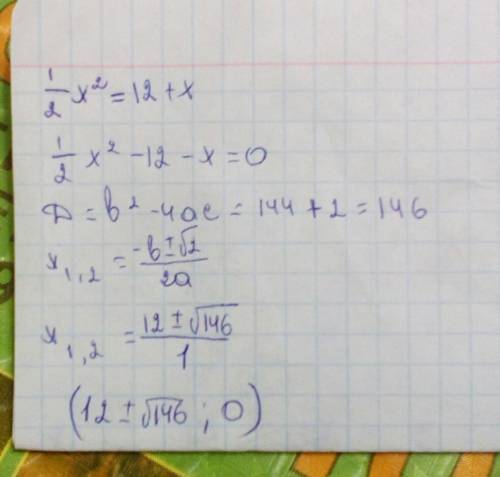 1/2 x² = 12 + x
1/2 x² - 12 - x = 0
D = b² - 4ac = 144 + 2 = 146
x₁,₂ = (-b ± √2)/2a
x₁,₂ = (12 ± √146)/1
(12 ± √146 ; 0)